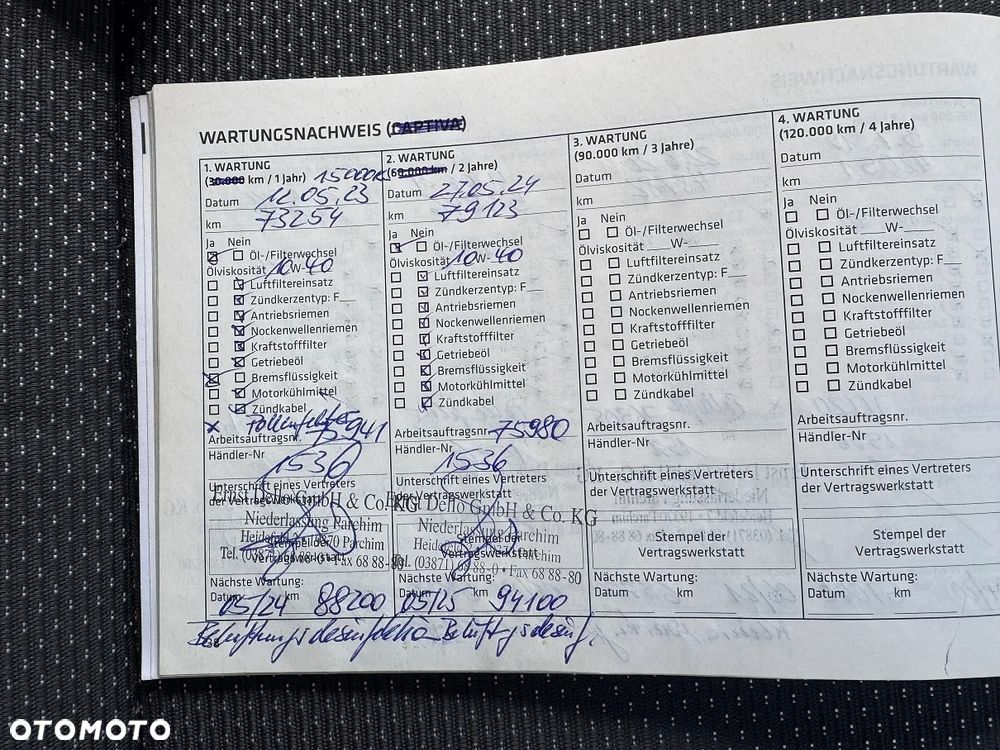 WARTUNGSNACHWEIS (CAPTIVA)
1. WARTUNG
(30.000 km / 1 Jahr) 15000K
Datum 12.05.23
km 73254
Ja Nein
Öl-/Filterwechsel
Ölviskosität 10W-40
Luftfiltereinsatz
Zündkerzentyp: F__
Antriebsriemen
Nockenwellenriemen
Kraftstofffilter
Getriebeöl
Bremsflüssigkeit
Motorkühlmittel
Zündkabel
x Pollenfilter
Arbeitsauftragsnr. 75941
Händler-Nr
1536
Unterschrift eines Vertreters
der Vertragswerkstatt
Ernst Dello GmbH & Co. KG
Niederlassung Parchim
Stempel der
Vertragswerkstatt
Nächste Wartung:
Datum km
05/24 88200
2. WARTUNG
(60.000 km / 2 Jahre)
Datum 27.05.24
km 79123
Ja Nein
Öl-/Filterwechsel
Ölviskosität 10W-40
Luftfiltereinsatz
Zündkerzentyp: F__
Antriebsriemen
Nockenwellenriemen
Kraftstofffilter
Getriebeöl
Bremsflüssigkeit
Motorkühlmittel
Zündkabel
Arbeitsauftragsnr. 75980
Händler-Nr
1536
Unterschrift eines Vertreters
der Vertragswerkstatt
Ernst Dello GmbH & Co. KG
Niederlassung Parchim
Stempel der
Vertragswerkstatt
Tel. (03871) 6 88 88-0 • Fax 68 88-80
Nächste Wartung:
Datum km
05/25 94100
3. WARTUNG
(90.000 km / 3 Jahre)
Datum
km
Ja Nein
Öl-/Filterwechsel
Ölviskosität ___W-___
Luftfiltereinsatz
Zündkerzentyp: F__
Antriebsriemen
Nockenwellenriemen
Kraftstofffilter
Getriebeöl
Bremsflüssigkeit
Motorkühlmittel
Zündkabel
Arbeitsauftragsnr.
Händler-Nr
Unterschrift eines Vertreters
der Vertragswerkstatt
Stempel der
Vertragswerkstatt
Nächste Wartung:
Datum km
4. WARTUNG
(120.000 km / 4 Jahre)
Datum
km
Ja Nein
Öl-/Filterwechsel
Ölviskosität ___W-___
Luftfiltereinsatz
Zündkerzentyp: F__
Antriebsriemen
Nockenwellenriemen
Kraftstofffilter
Getriebeöl
Bremsflüssigkeit
Motorkühlmittel
Zündkabel
Arbeitsauftragsnr.
Händler-Nr
Unterschrift eines Vertreters
der Vertragswerkstatt
Stempel der
Vertragswerkstatt
Nächste Wartung:
Datum km
OTOMOTO